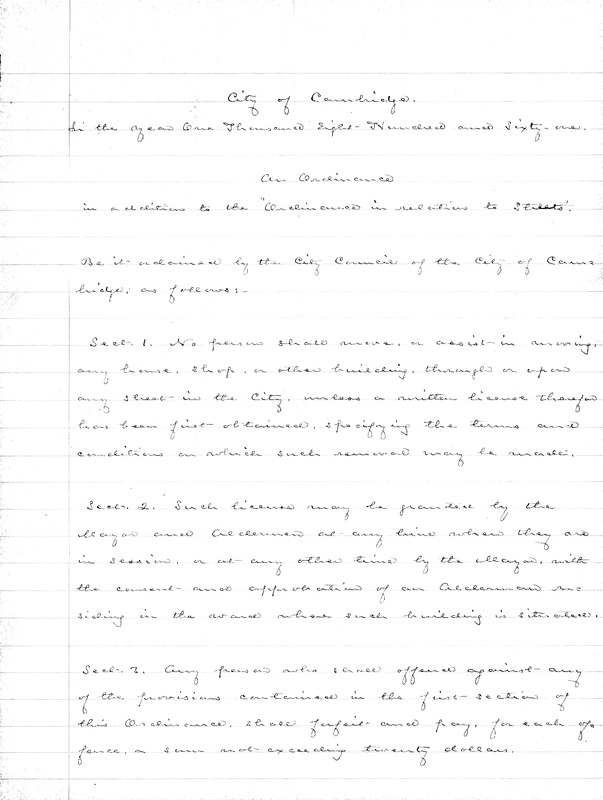 City of Cambridge.
In the year One Thousand Eight Hundred and Sixty-one.
An Ordinance
in addition to the "Ordinance in relation to Streets".
Be it ordained by the City Council of the City of Cam=
bridge, as follows:-
Sect. 1. No person shall move, or assist in moving,
any house, shop, or other building, through or upon
any street in the City, unless a written license therefor
has been first obtained, specifying the terms and
conditions on which such removal may be made.
Sect. 2. Such license may be granted by the
Mayor and Aldermen at any time when they are
in session, or at any other time by the Mayor, with
the consent and approbation of an Alderman re=
siding in the ward where such building is situated.
Sect. 3. Any person who shall offend against any
of the provisions contained in the first section of
this Ordinance, shall forfeit and pay, for each of=
fence, a sum not exceeding twenty dollars.